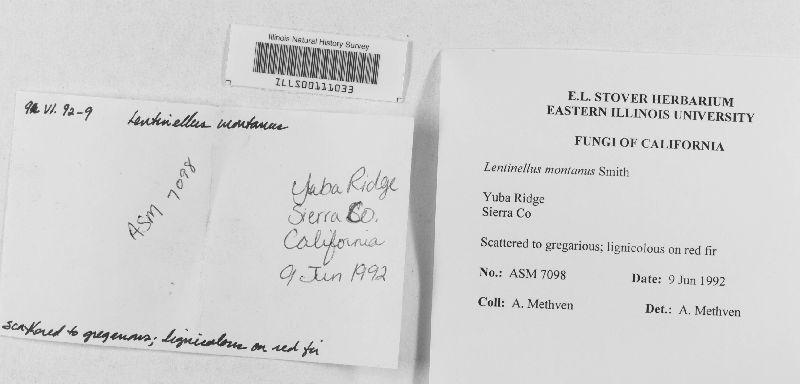 Illinois Natural History Survey
ILLS00111033
9 VI. 92-9
Lentinellus montanus
ASM 7098
Yuba Ridge
Sierra Co.
California
9 Jun 1992
scattered to gregarious; lignicolous on red fir
E.L. STOVER HERBARIUM
EASTERN ILLINOIS UNIVERSITY
FUNGI OF CALIFORNIA
Lentinellus montanus Smith
Yuba Ridge
Sierra Co
Scattered to gregarious; lignicolous on red fir
No.: ASM 7098 Date: 9 Jun 1992
Coll: A. Methven Det.: A. Methven